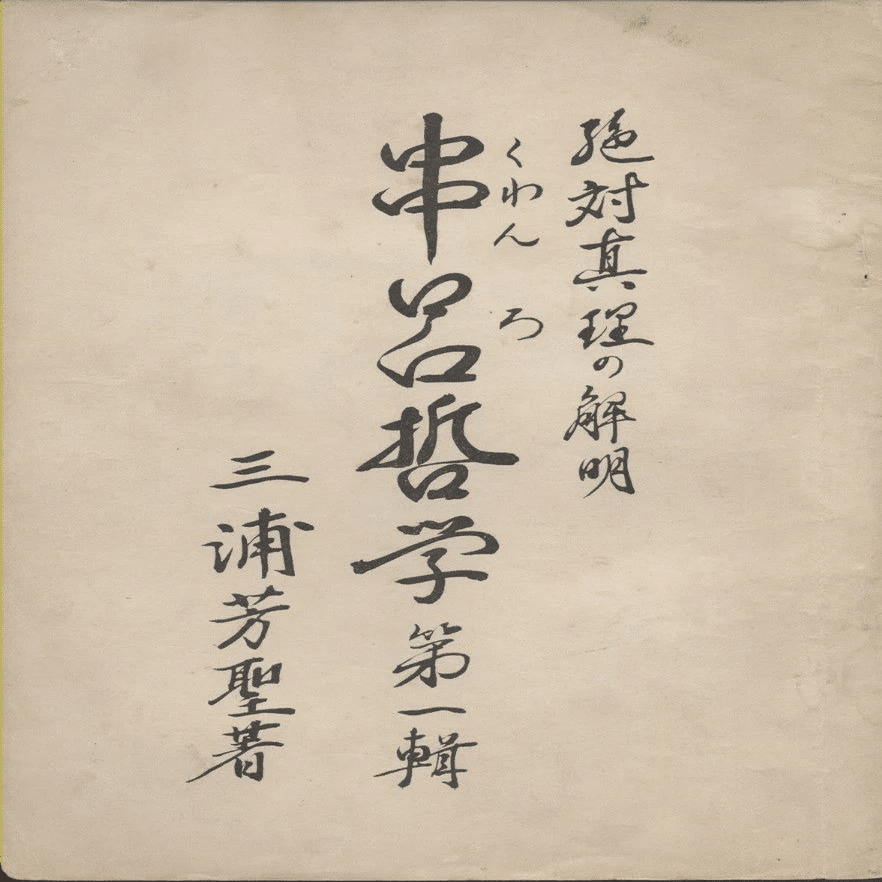 絶対真理の解明
くわん ろ
串呂哲学 第一輯
三浦芳聖著